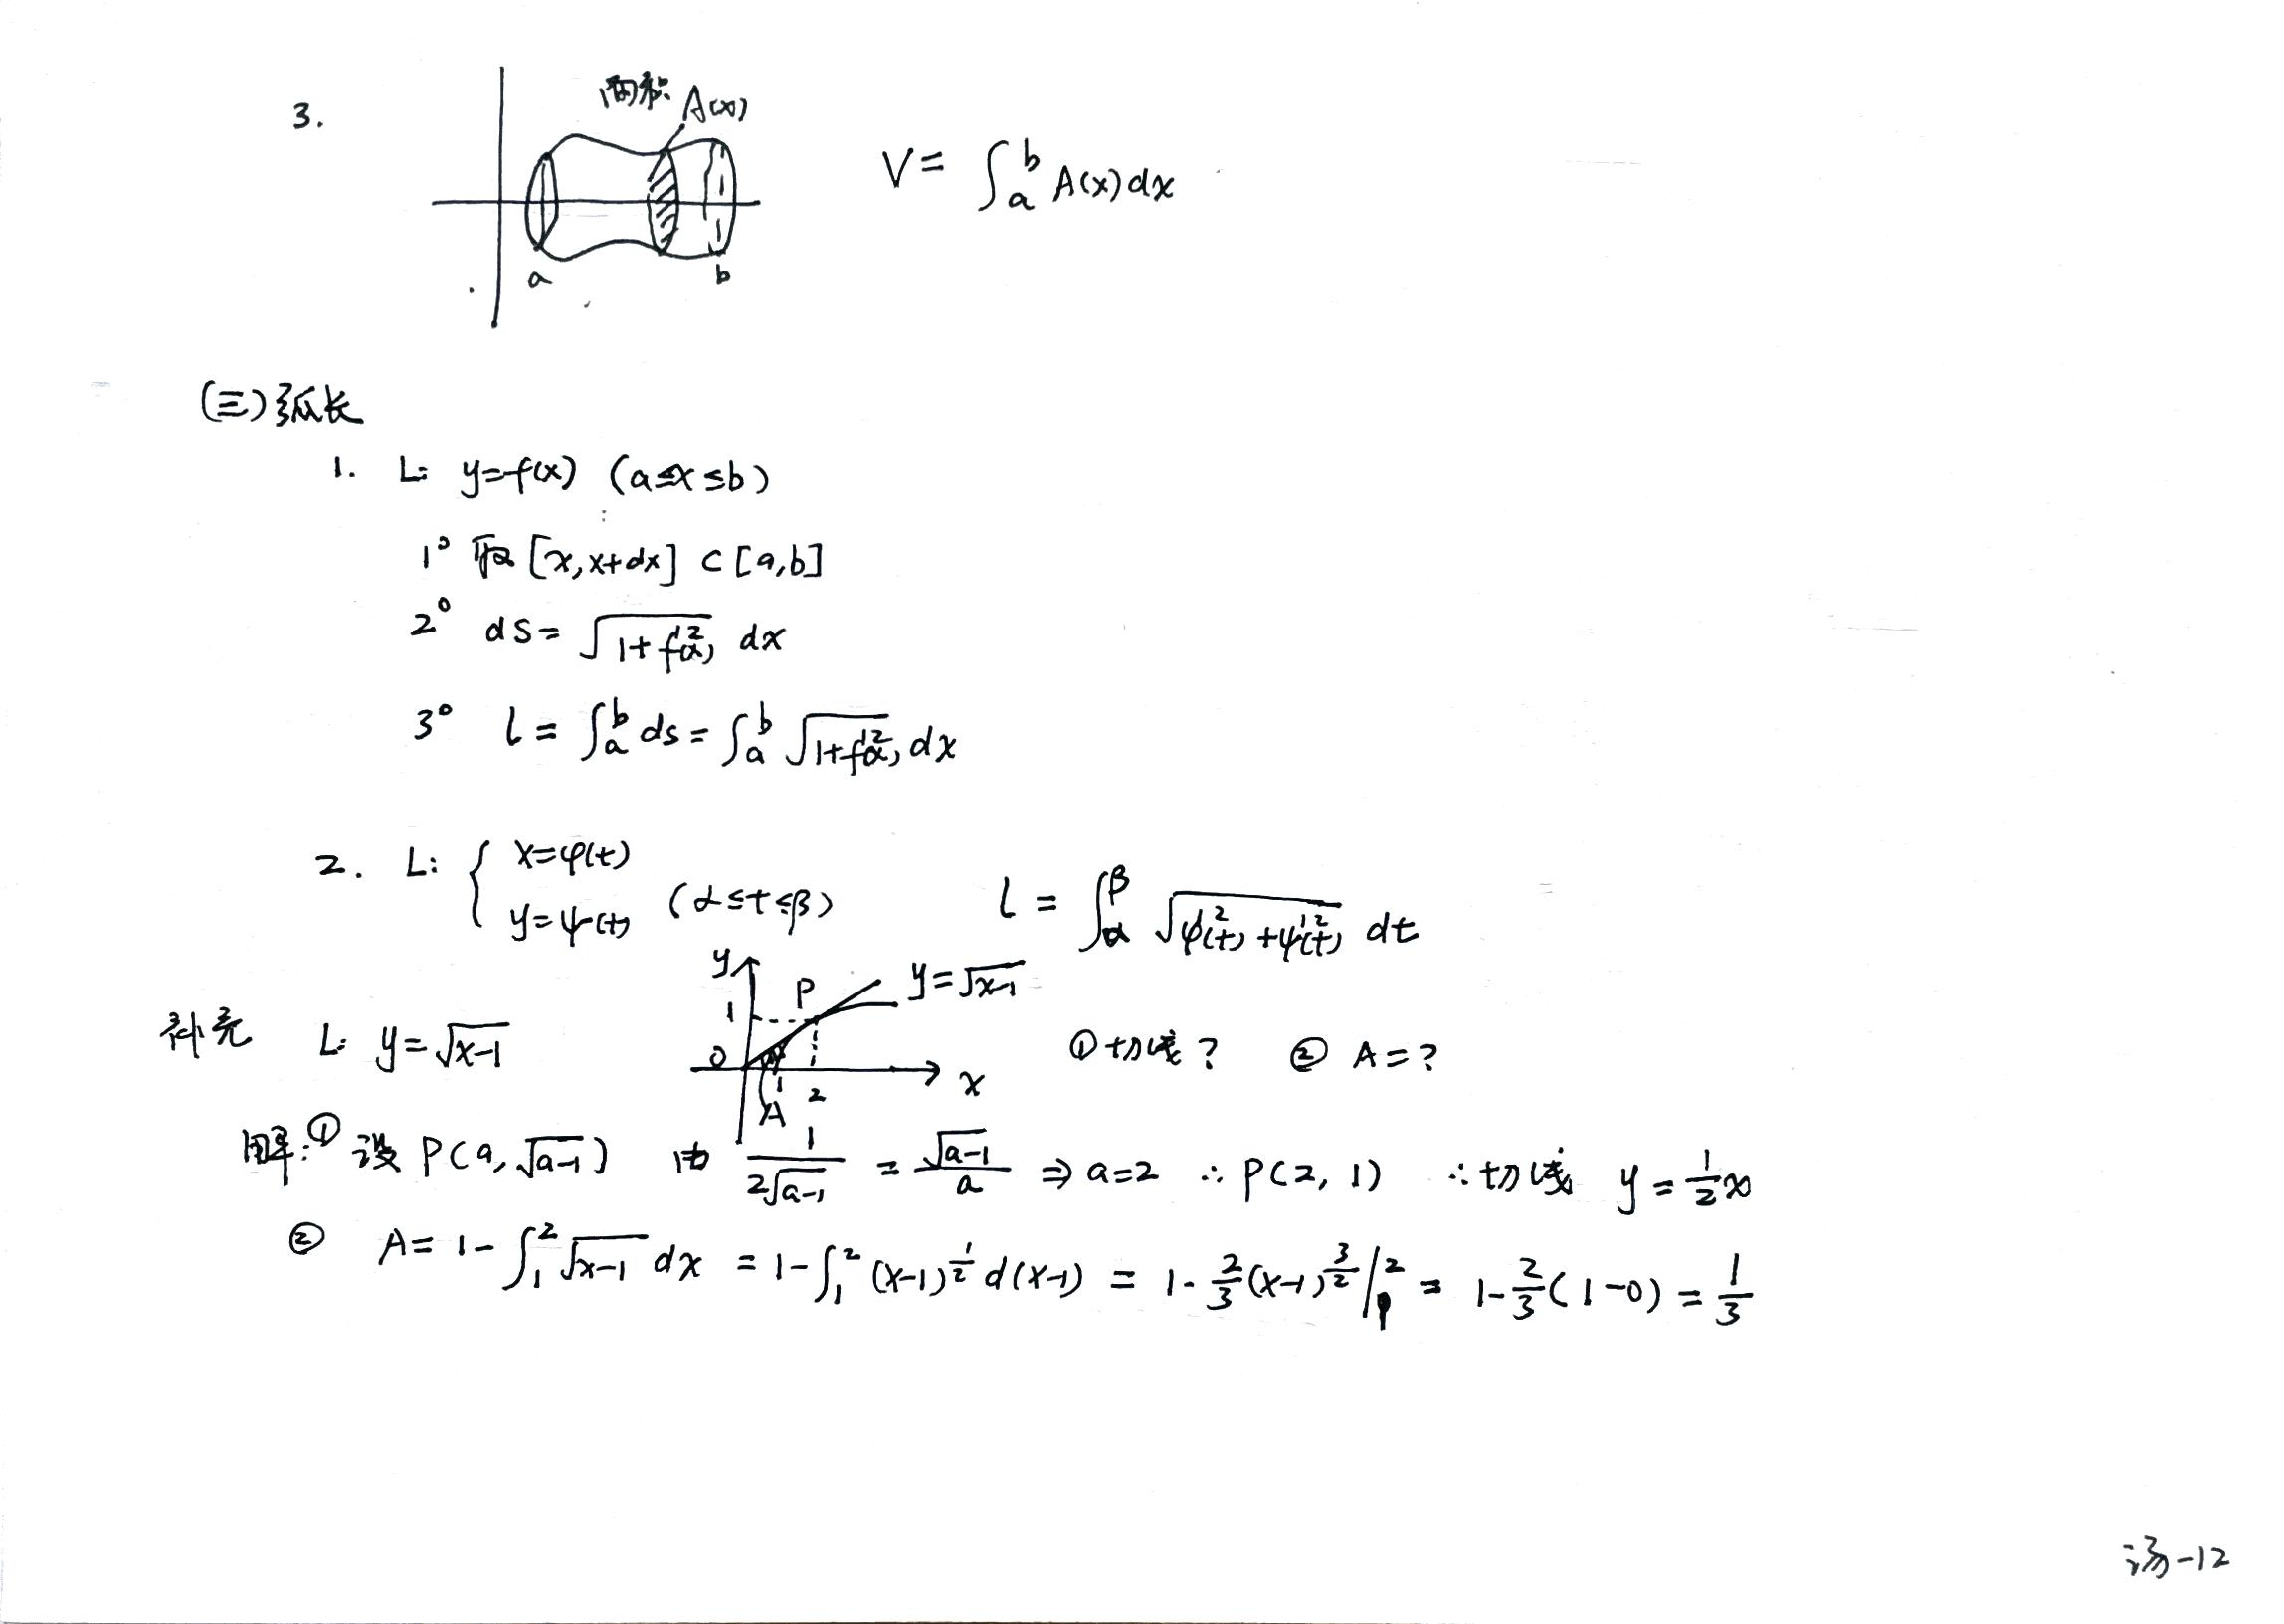 3.
面积 A(x)
a b
V = ∫_a^b A(x)dx
(三)弧长
1. L: y=f(x) (a≤x≤b)
1° 取 [x, x+dx] ⊂ [a,b]
2° ds = √(1+f'²(x)) dx
3° l = ∫_a^b ds = ∫_a^b √(1+f'²(x)) dx
2. L: { x=φ(t) y=ψ(t) (α≤t≤β) l = ∫_α^β √(φ'²(t)+ψ'²(t)) dt
补充 L: y=√(x-1)
y 1 P y=√(x-1) O 1 2 x A
①切线? ② A=?
解:① 设 P(a, √(a-1)) 由 1/(2√(a-1)) = √(a-1)/a ⇒ a=2 ∴ P(2, 1) ∴切线 y=1/2 x
② A = 1-∫_1^2 √(x-1) dx = 1-∫_1^2 (x-1)^(1/2) d(x-1) = 1-2/3(x-1)^(3/2)|_1^2 = 1-2/3(1-0) = 1/3
汤-12